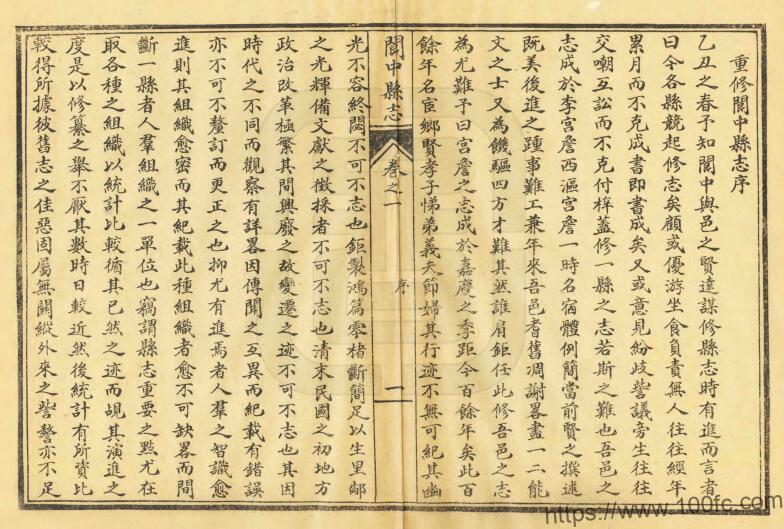 重修閬中縣志序
乙丑之春予知閬中與邑之賢達謀修縣志時有進而言者
曰今各縣競起修志矣顧或優游坐食負責無人往往經年
累月而不克成書即書成矣又或意見紛歧訾議旁生往往
交嘲互訟而不克付梓蓋修一縣之志若斯之難也吾邑之
志成於李宮詹西漚宮詹一時名宿體例簡當前賢之撰述
既美後進之踵事難工兼年來吾邑耆舊凋謝畧盡一二能
文之士又為饑驅四方才難其然誰肩鉅任此修吾邑之志
為尤難予曰宮詹之志成於嘉慶之季距今百餘年矣此百
餘年名宦鄉賢孝子悌弟義夫節婦其行迹不無可紀其幽
閬中縣志
卷之一
序
一
光不容終閟不可不志也鉅製鴻篇零楮斷簡足以生里鄰
之光輝備文獻之徵採者不可不志也清末民國之初地方
政治改革極繁其間興廢之故變遷之迹不可不志也其因
時代之不同而觀察有詳畧因傳聞之互異而紀載有錯誤
亦不可不釐訂而更正之也抑尤有進焉者人羣之智識愈
進則其組織愈密而其紀載此種組織者愈不可缺畧而間
斷一縣者人羣組織之一單位也竊謂縣志重要之點尤在
取各種之組織以統計比較循其已然之迹而覘其演進之
度是以修纂之舉不厭其數時日較近然後統計有所資比
較得所據彼舊志之佳惡固屬無關縱外來之訾謷亦不足
https://www.100fc.com